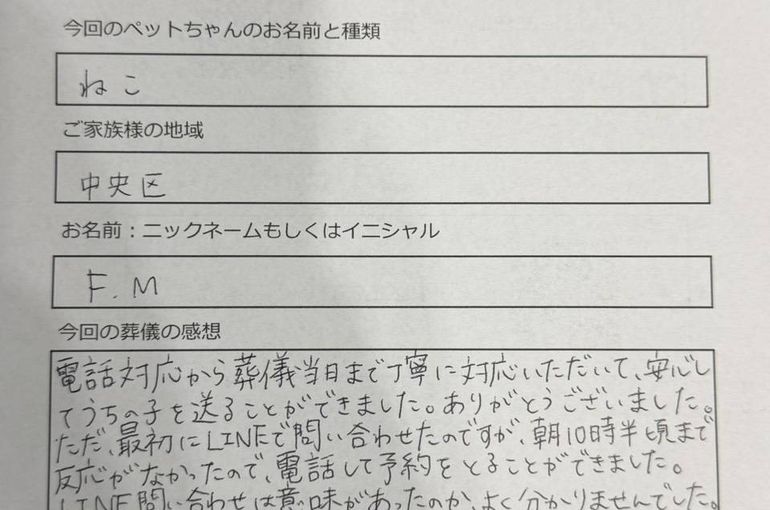 今回のペットちゃんのお名前と種類
ねこ
ご家族様の地域
中央区
お名前：ニックネームもしくはイニシャル
F.M
今回の葬儀の感想
電話対応から葬儀当日まで丁寧に対応いただいて、安心し
てうちの子を送ることができました。ありがとうございました。
ただ、最初にLINEで問い合わせたのですが、朝10時半頃まで
反応がなかったので、電話して予約をとることができました。
LINE問い合わせは意味があったのか、よく分かりませんでした。